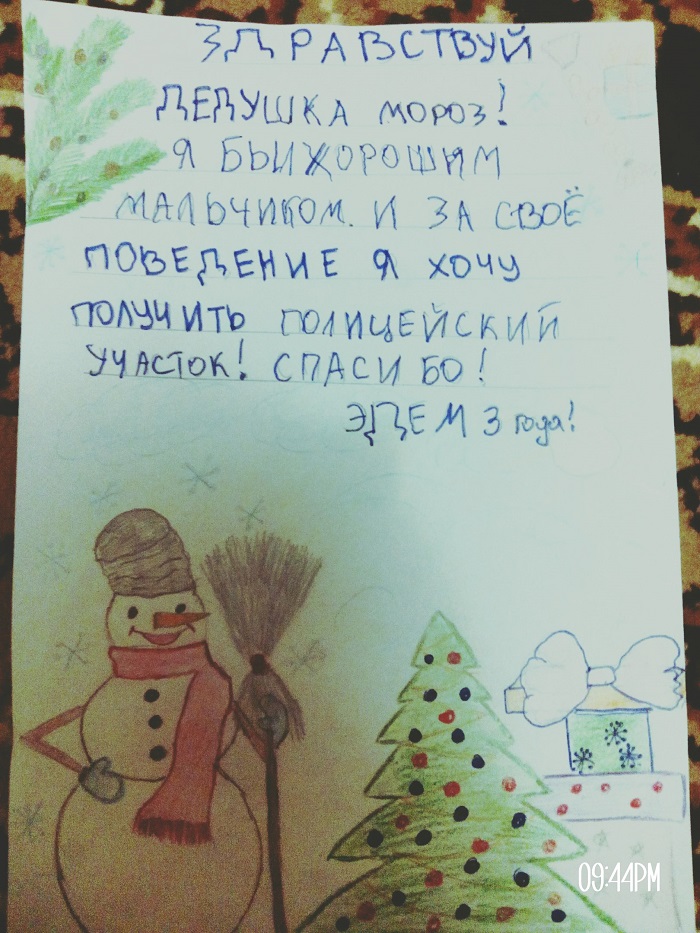 ЗДРАВСТВУЙ
ДЕДУШКА МОРОЗ!
Я БЫЛ ХОРОШИМ
МАЛЬЧИКОМ. И ЗА СВОЁ
ПОВЕДЕНИЕ Я ХОЧУ
ПОЛУЧИТЬ ПОЛИЦЕЙСКИЙ
УЧАСТОК! СПАСИБО!
ЭДЕМ 3 года!
09:44PM